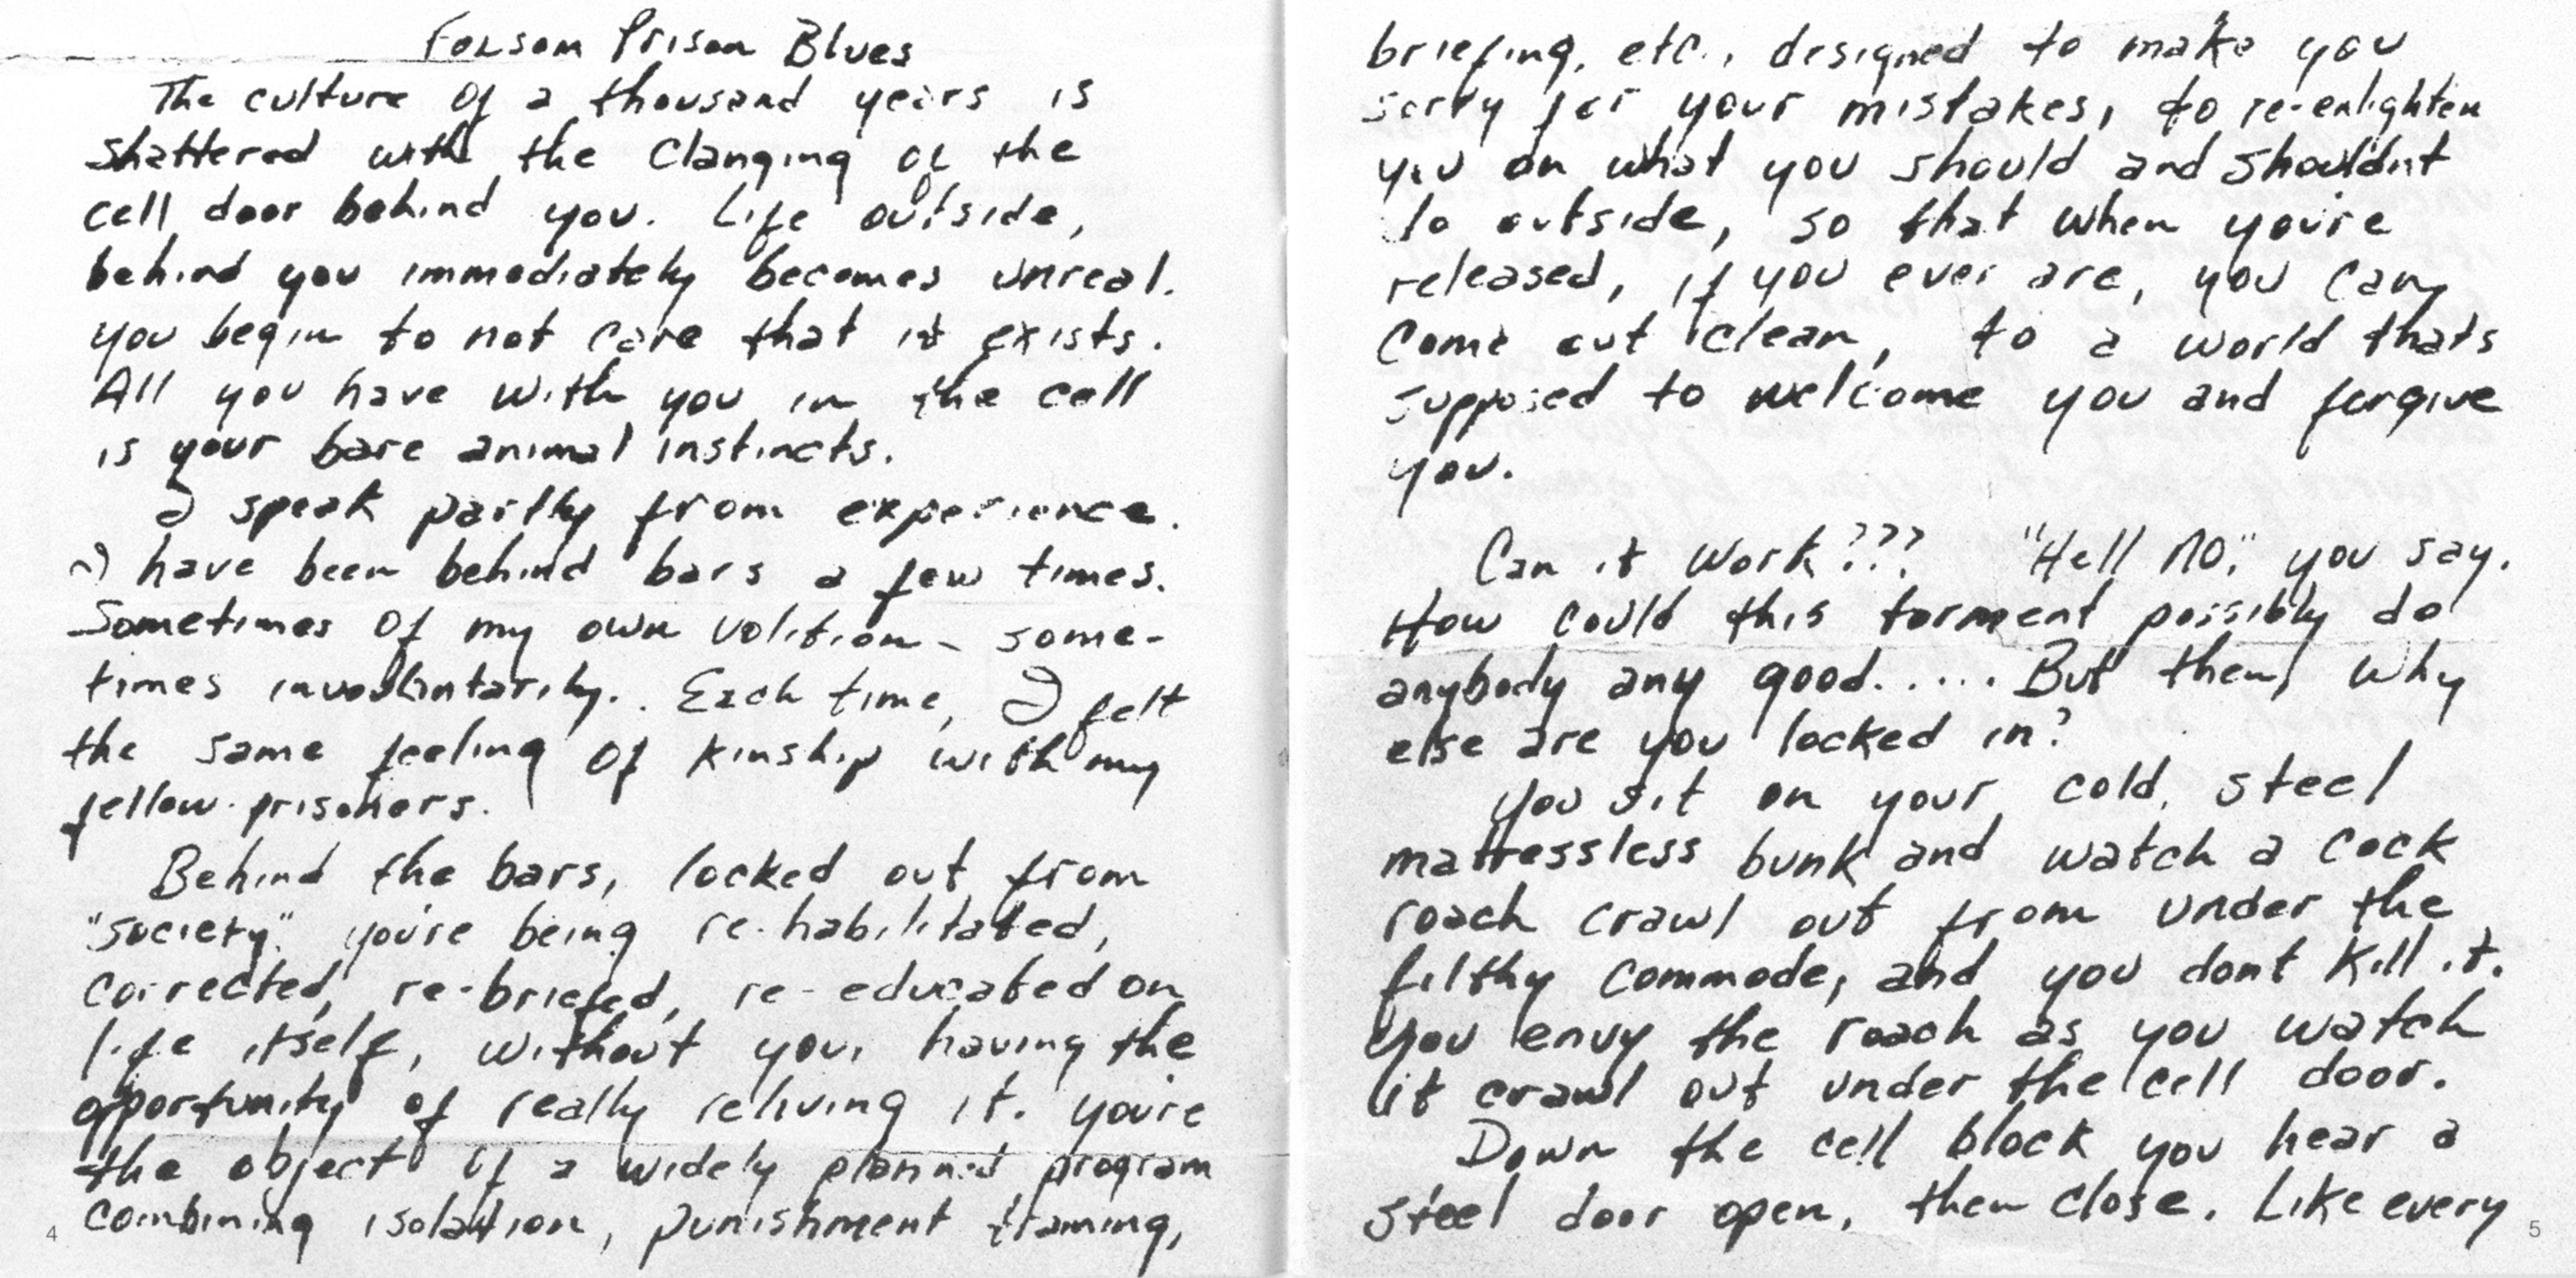 Folsom Prison Blues
The culture of a thousand years is
shattered with the clanging of the
cell door behind you. Life outside,
behind you immediately becomes unreal.
you begin to not care that it exists.
All you have with you in the cell
is your bare animal instincts.
I speak partly from experience.
I have been behind bars a few times.
Sometimes of my own volition - some-
times involuntarily. Each time, I felt
the same feeling of kinship with my
fellow prisoners.
Behind the bars, locked out from
"society", you're being re-habilitated,
corrected, re-briefed, re-educated on
life itself, without you, having the
opportunity of really reliving it. you're
the object of a widely planned program
combining isolation, punishment training,
4
briefing, etc., designed to make you
sorry for your mistakes, to re-enlighten
you on what you should and shouldnt
do outside, so that when you're
released, if you ever are, you can
come out clean, to a world thats
supposed to welcome you and forgive
you.
Can it work??? "Hell no," you say.
How could this torment possibly do
anybody any good..... But then, why
else are you locked in?
You sit on your cold, steel
mattressless bunk and watch a cock
roach crawl out from under the
filthy commode, and you dont kill it.
You envy the roach as you watch
it crawl out under the cell door.
Down the cell block you hear a
steel door open, then close. Like every
5